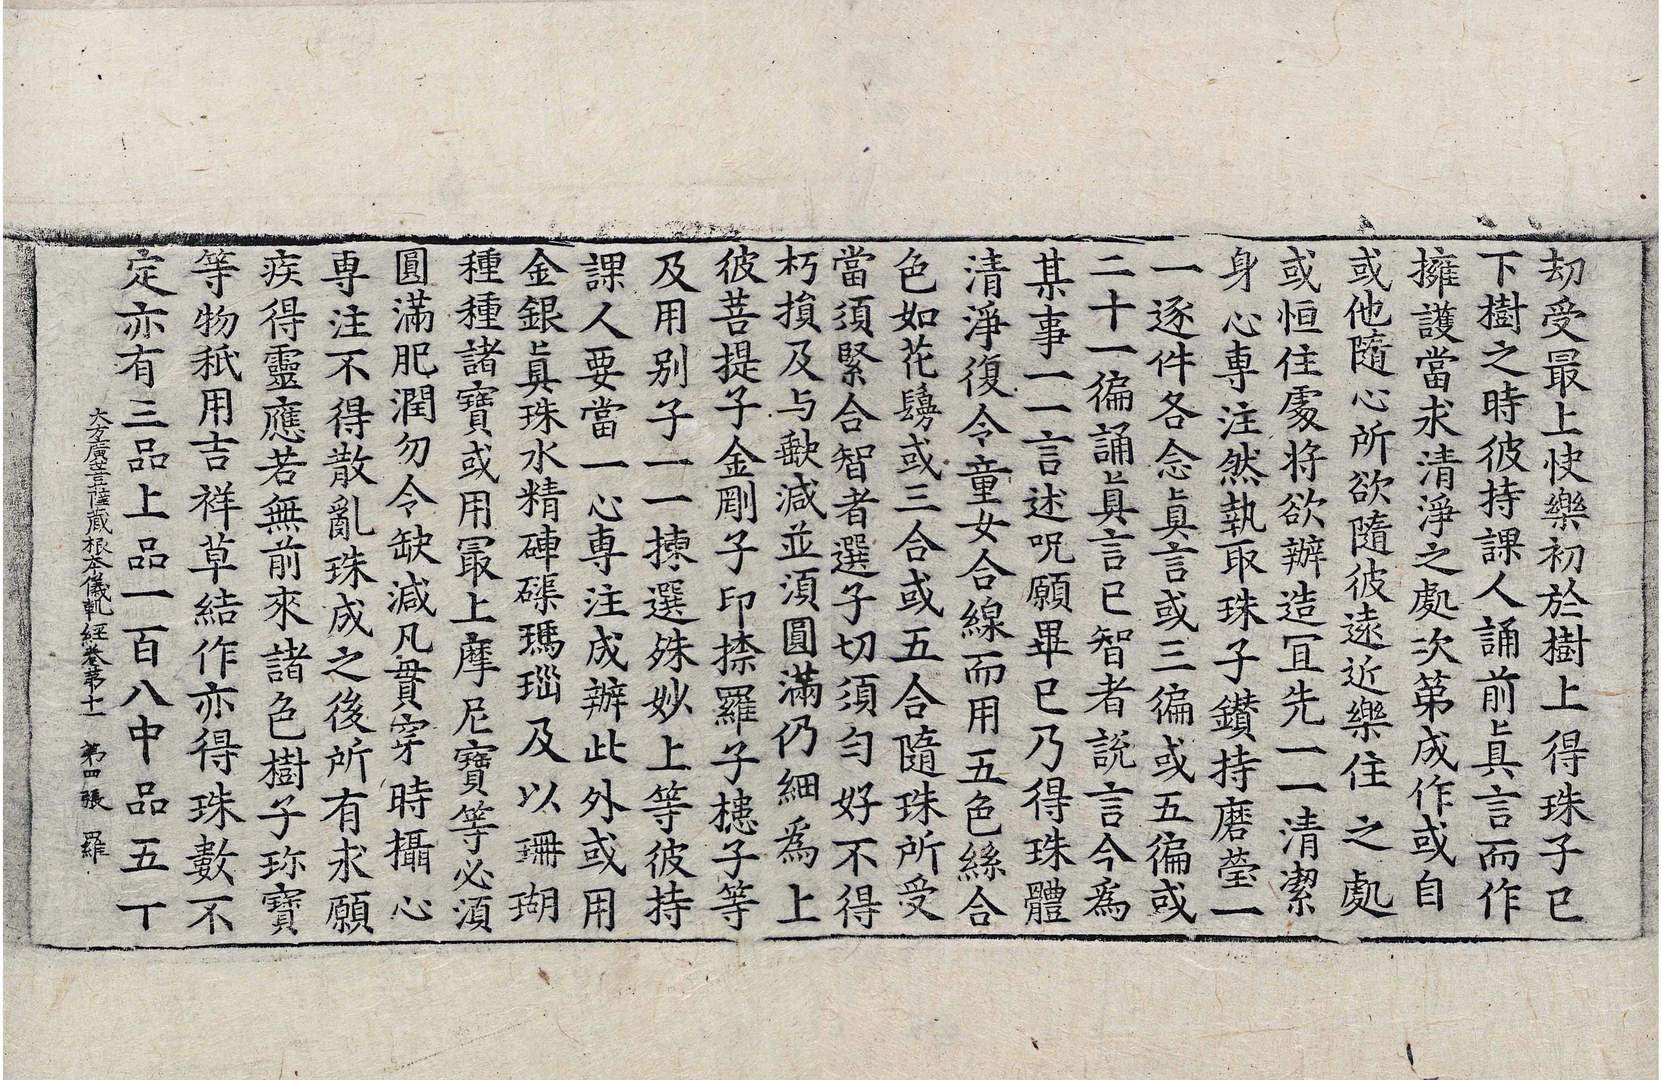 劫受最上快樂初於樹上得珠子已
下樹之時彼持課人誦前眞言而作
擁護當求清淨之處次第成作或自
或他隨心所欲隨彼遠近樂住之處
或恒住處将欲辦造冝先一一清潔
身心専注然執取珠子鑚持磨瑩一
一逐件各念眞言或三徧或五徧或
二十一徧誦眞言已智者說言今爲
某事一一言述呪願畢已乃得珠體
清淨復令童女合線而用五色絲合
色如花鬘或三合或五合隨珠所受
當須緊合智者選子切須勻好不得
朽損及与㱃減並須圓滿仍細爲上
彼菩提子金剛子印捺羅子槵子等
及用别子一一揀選殊妙上等彼持
課人要當一心専注成辦此外或用
金銀眞珠水精硨磲瑪瑙及以珊瑚
種種諸寶或用冣上摩尼寶等必須
圓滿肥潤勿令缺減凡貫穿時攝心
専注不得散亂珠成之後所有求願
疾得靈應若無前來諸色樹子珎寶
等物秖用吉祥草結作亦得珠數不
定亦有三品上品一百八中品五丅
大方廣菩薩藏根本儀軌經卷第十一　第四張　羅